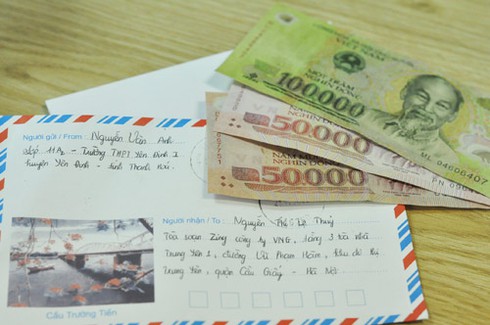 VIỆT NAM
100.000
MỘT TRĂM
NGHÌN ĐỒNG
50.000
NGHÌN ĐỒNG
50.000
NGHÌN ĐỒNG
Người gửi / From : Nguyễn Vân Anh
lớp 11A2 - Trường THPT Yên Định 2
huyện Yên Định - tỉnh Thanh Hóa.
Người nhận / To : Nguyễn Thủy
Tòa soạn Zing công ty VNG, tầng 3 tòa nhà
Trung Yên 1, đường Vũ Phạm Hàm, khu đô thị
Trung Yên, quận Cầu Giấy - Hà Nội
Cầu Trường Tiền